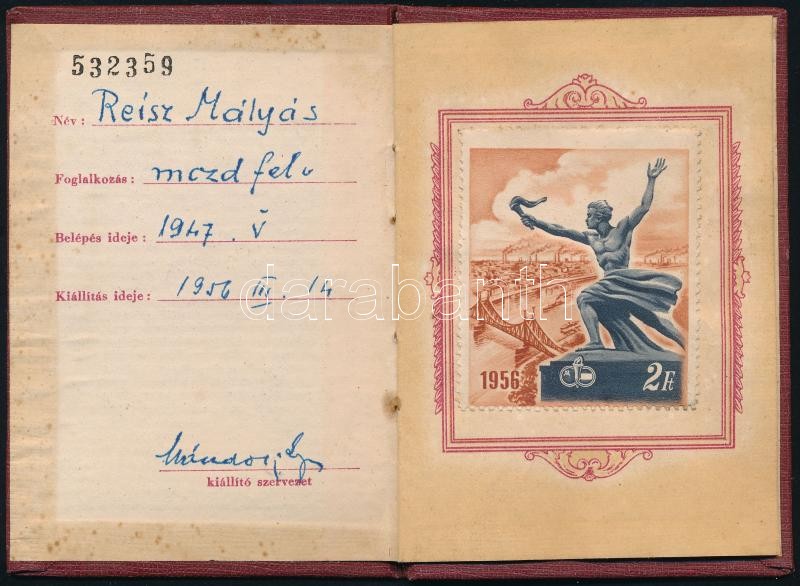 532359
Név: Reisz Mátyás
Foglalkozás: mczd felv
Belépés ideje: 1947. V
Kiállítás ideje: 1956 III. 14
kiállító szervezet
1956
2 Ft
darabanth